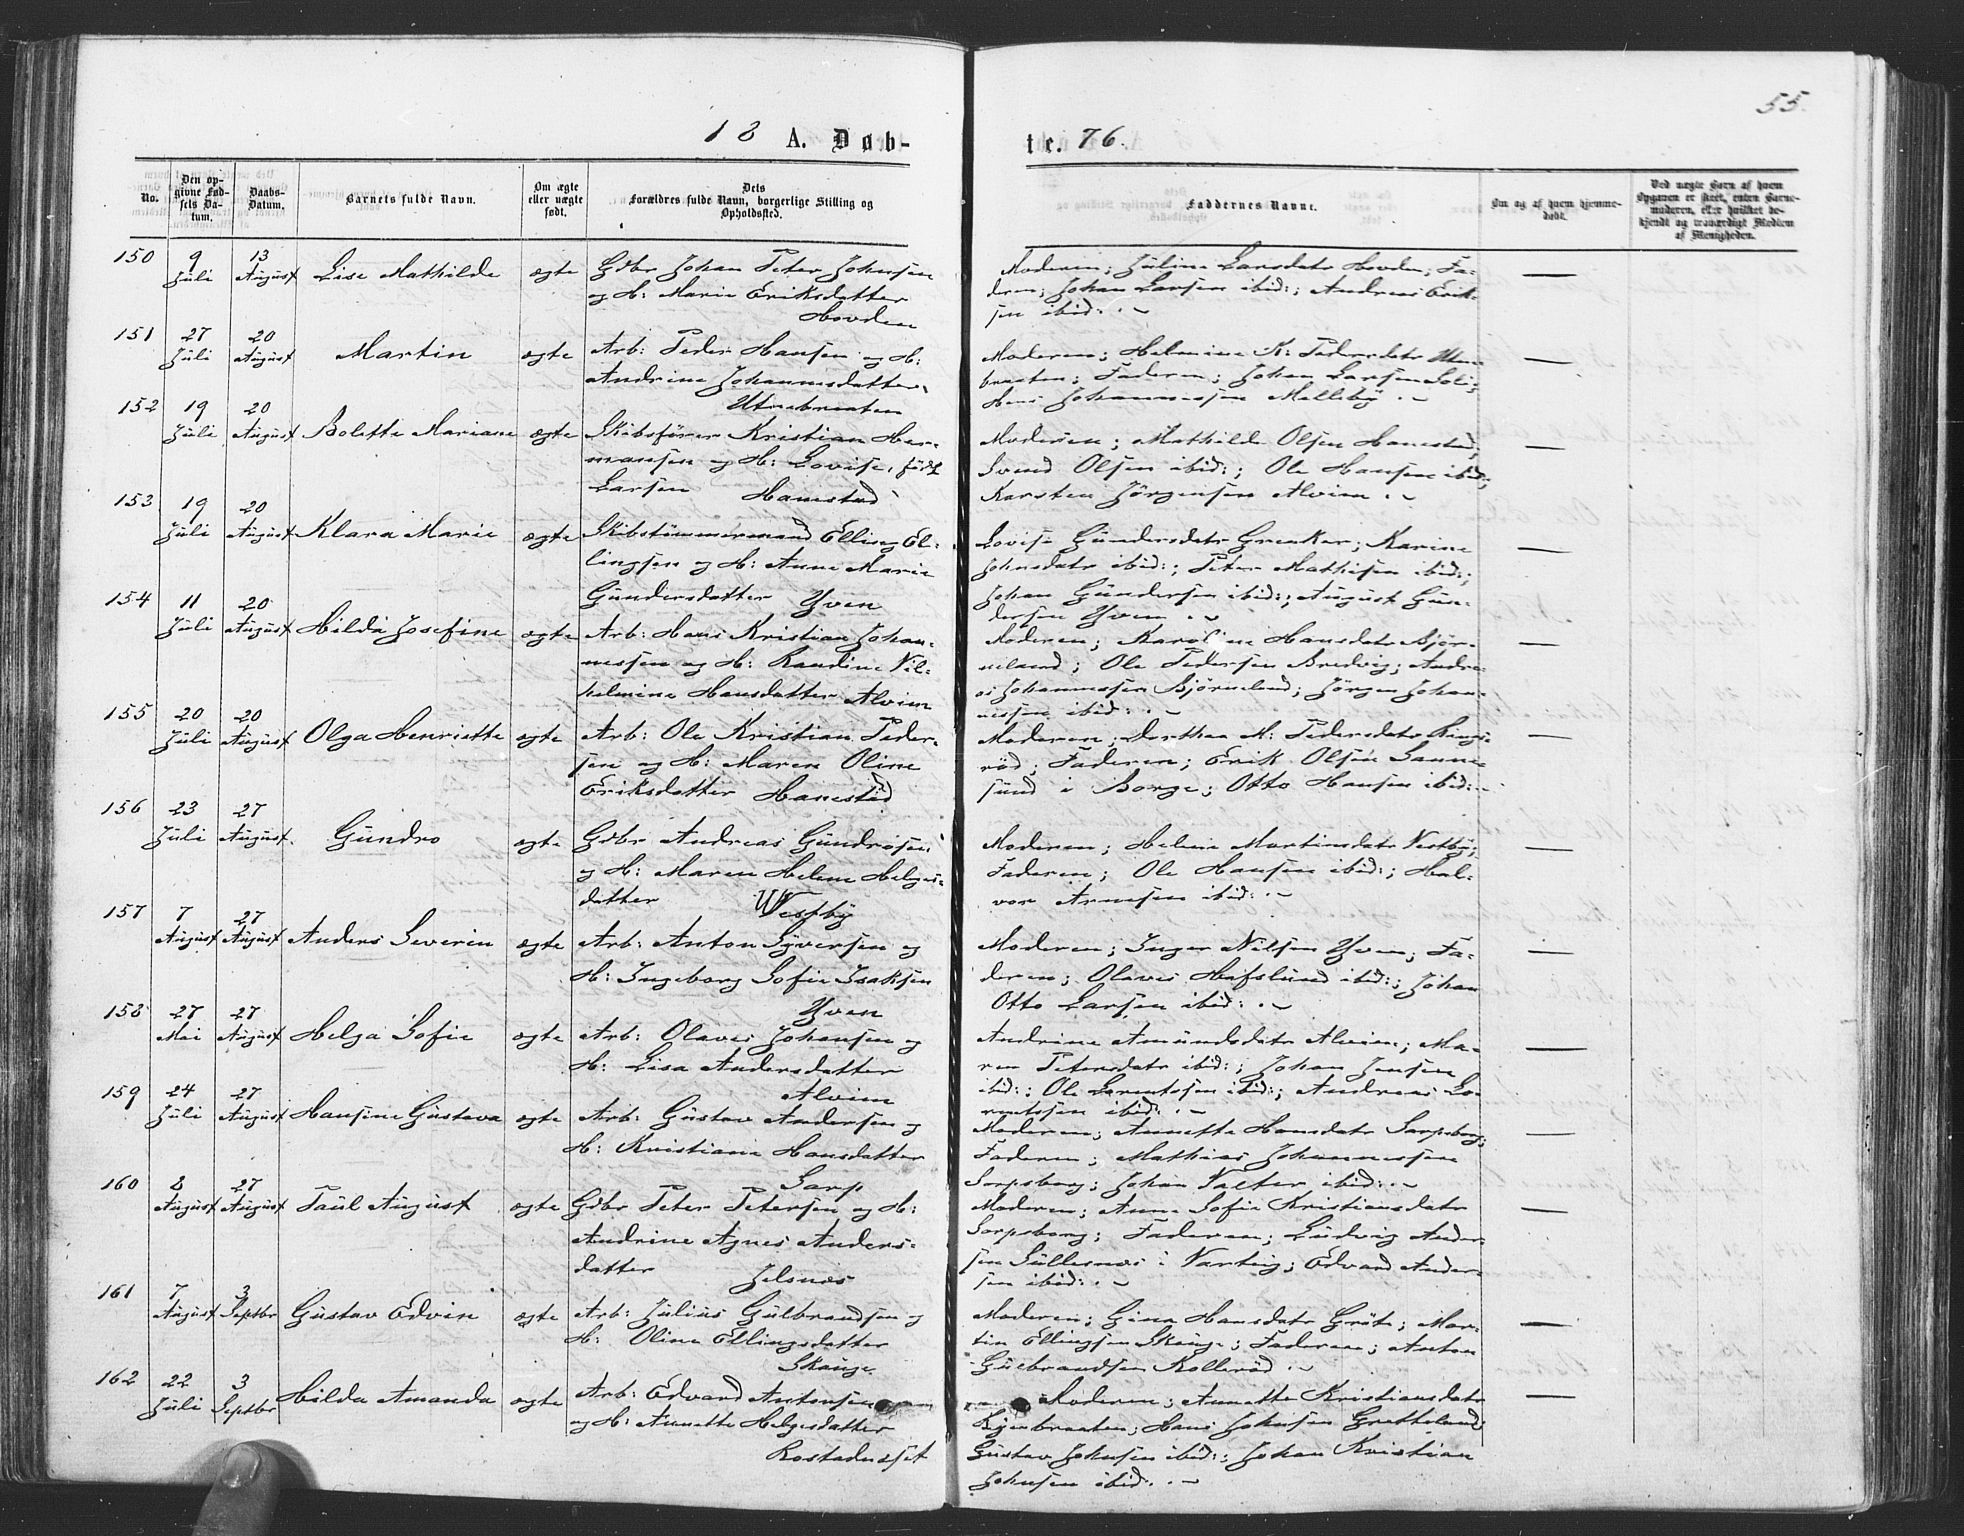 55.
18 A. Døb-
te. 76.
No.
Den op-
givne Fød-
sels Da-
tum.
Daabs-
Datum.
Barnets fulde Navn.
Om ægte
eller uægte
født.
Dets
Forældres fulde Navn, borgerlige Stilling og
Opholdsted.
Faddernes Navne.
Om og af hvem hjemme-
døbt.
Ved uægte Børn af hvem
Opgaven er skeet, enten Barne-
moderen, eller hvilket be-
kjendt og troværdigt Medlem
af Menigheden.
150 9 Juli 13 August Lise Mathilde ægte Gdbr Johan Peter Johnsen
og H: Marie Eriksdatter
Hovden
Moderen; Juline Larsdatr Hovden; Fa-
deren; Johan Larsen ibid:; Andreas Erik-
sen ibid:. -
151 27 Juli 20 August Martin ægte Arb: Peder Hansen og H:
Andrine Johannesdatter,
Utnebraaten
Moderen; Helmine K: Pedersdatr
braaten; Faderen; Johan Larsen Soli;
Hans Johannessen Melleby. -
152 19 Juli 20 August Bolette Mariane ægte Skibsfører Kristian Her-
mansen og H: Lovise, født
Larsen Hanestad
Moderen; Mathilde Olsen Hanestad;
Svend Olsen ibid:; Ole Hansen ibid:;
Karsten Jørgensen Alvim. -
153 19 Juli 20 August Klara Marie ægte Skibstømmermand Elling El-
lingsen og H: Anne Marie
Gundersdatter Yven
Lovise Gundersdatr Greaker; Karine
Johnsdatr ibid:; Peter Mathisen ibid:;
Johan Gundersen ibid:; August Gun-
dersen Yven. -
154 11 Juli 20 August Hilda Josefine ægte Arb: Hans Kristian Johan-
nessen og H: Randine Vil-
helmine Hansdatter Alvim
Moderen; Karoline Hansdatr Bjør-
neland; Ole Pedersen Bredvig; Andre-
as Johannessen Bjørneland; Jørgen Johan-
nessen ibid:. -
155 20 Juli 20 August Olga Henriette ægte Arb: Ole Kristian Peder-
sen og H: Maren Oline
Eriksdatter Hanestad
Moderen; Dorthea M: Pedersdatr Rings-
rød; Faderen; Erik Olsen Sanne-
sund i Borge; Otto Hansen ibid:. -
156 23 Juli 27 August. Gundro ægte Gdbr Andreas Gundrosen
og H: Maren Helene Helges-
datter Westby
Moderen; Helene Martinsdatr Vestby;
Faderen; Ole Hansen ibid:; Hal-
vor Arnesen ibid:. -
157 7 August 27 August Anders Severin ægte Arb: Anton Syversen og
H: Ingeborg Sofie Isaksen
Yven
Moderen; Inger Nilsen Yven; Fa-
deren; Olaves Hafslund ibid:; Johan
Otto Larsen ibid:. -
158 27 Mai 27 August Helga Sofie ægte Arb: Olaves Johansen og
H: Lisa Andersdatter
Alvim
Andrine Amundsdatr Alvim; Ma-
ren Petersdatr ibid:; Johan Jensen
ibid:; Ole Larentssen ibid:; Andreas Lo-
rentssen ibid:. -
159 24 Juli 27 August Hansine Gustava ægte Arb: Gustav Andersen og
H: Kristiane Hansdatter
Sarp
Moderen; Annette Hansdatr Sarpsborg;
Faderen; Mathias Johannessen
Sarpsborg; Johan Valter ibid:. -
160 8 August 27 August Paul August ægte Gdbr Peter Petersen og H:
Andrine Agnes Anders-
datter Jelsnæs
Moderen; Anne Sofie Kristiansdatr
Sarpsborg; Faderen; Ludvig Ander-
sen Sullesnæs i Varteig; Edvard Ander-
sen ibid:. -
161 7 August 3 Septbr Gustav Edvin ægte Arb: Julius Gulbrandsen og
H: Oline Ellingsdatter
Skauge.
Moderen; Gina Hansdatr Grøte; Mar-
tin Ellingsen Skauge; Faderen; Anton
Gulbrandsen Kollerød. -
162 22 Juli 3 Septbr Hilda Amanda ægte Arb: Edvard Antonsen
og H: Annette Helgesdatter
Rostadneset
Moderen; Annette Kristiansdatr
Hans Johnsen Gretteland;
Gustav Johnsen ibid:; Johan Kristian
Johnsen ibid:. -